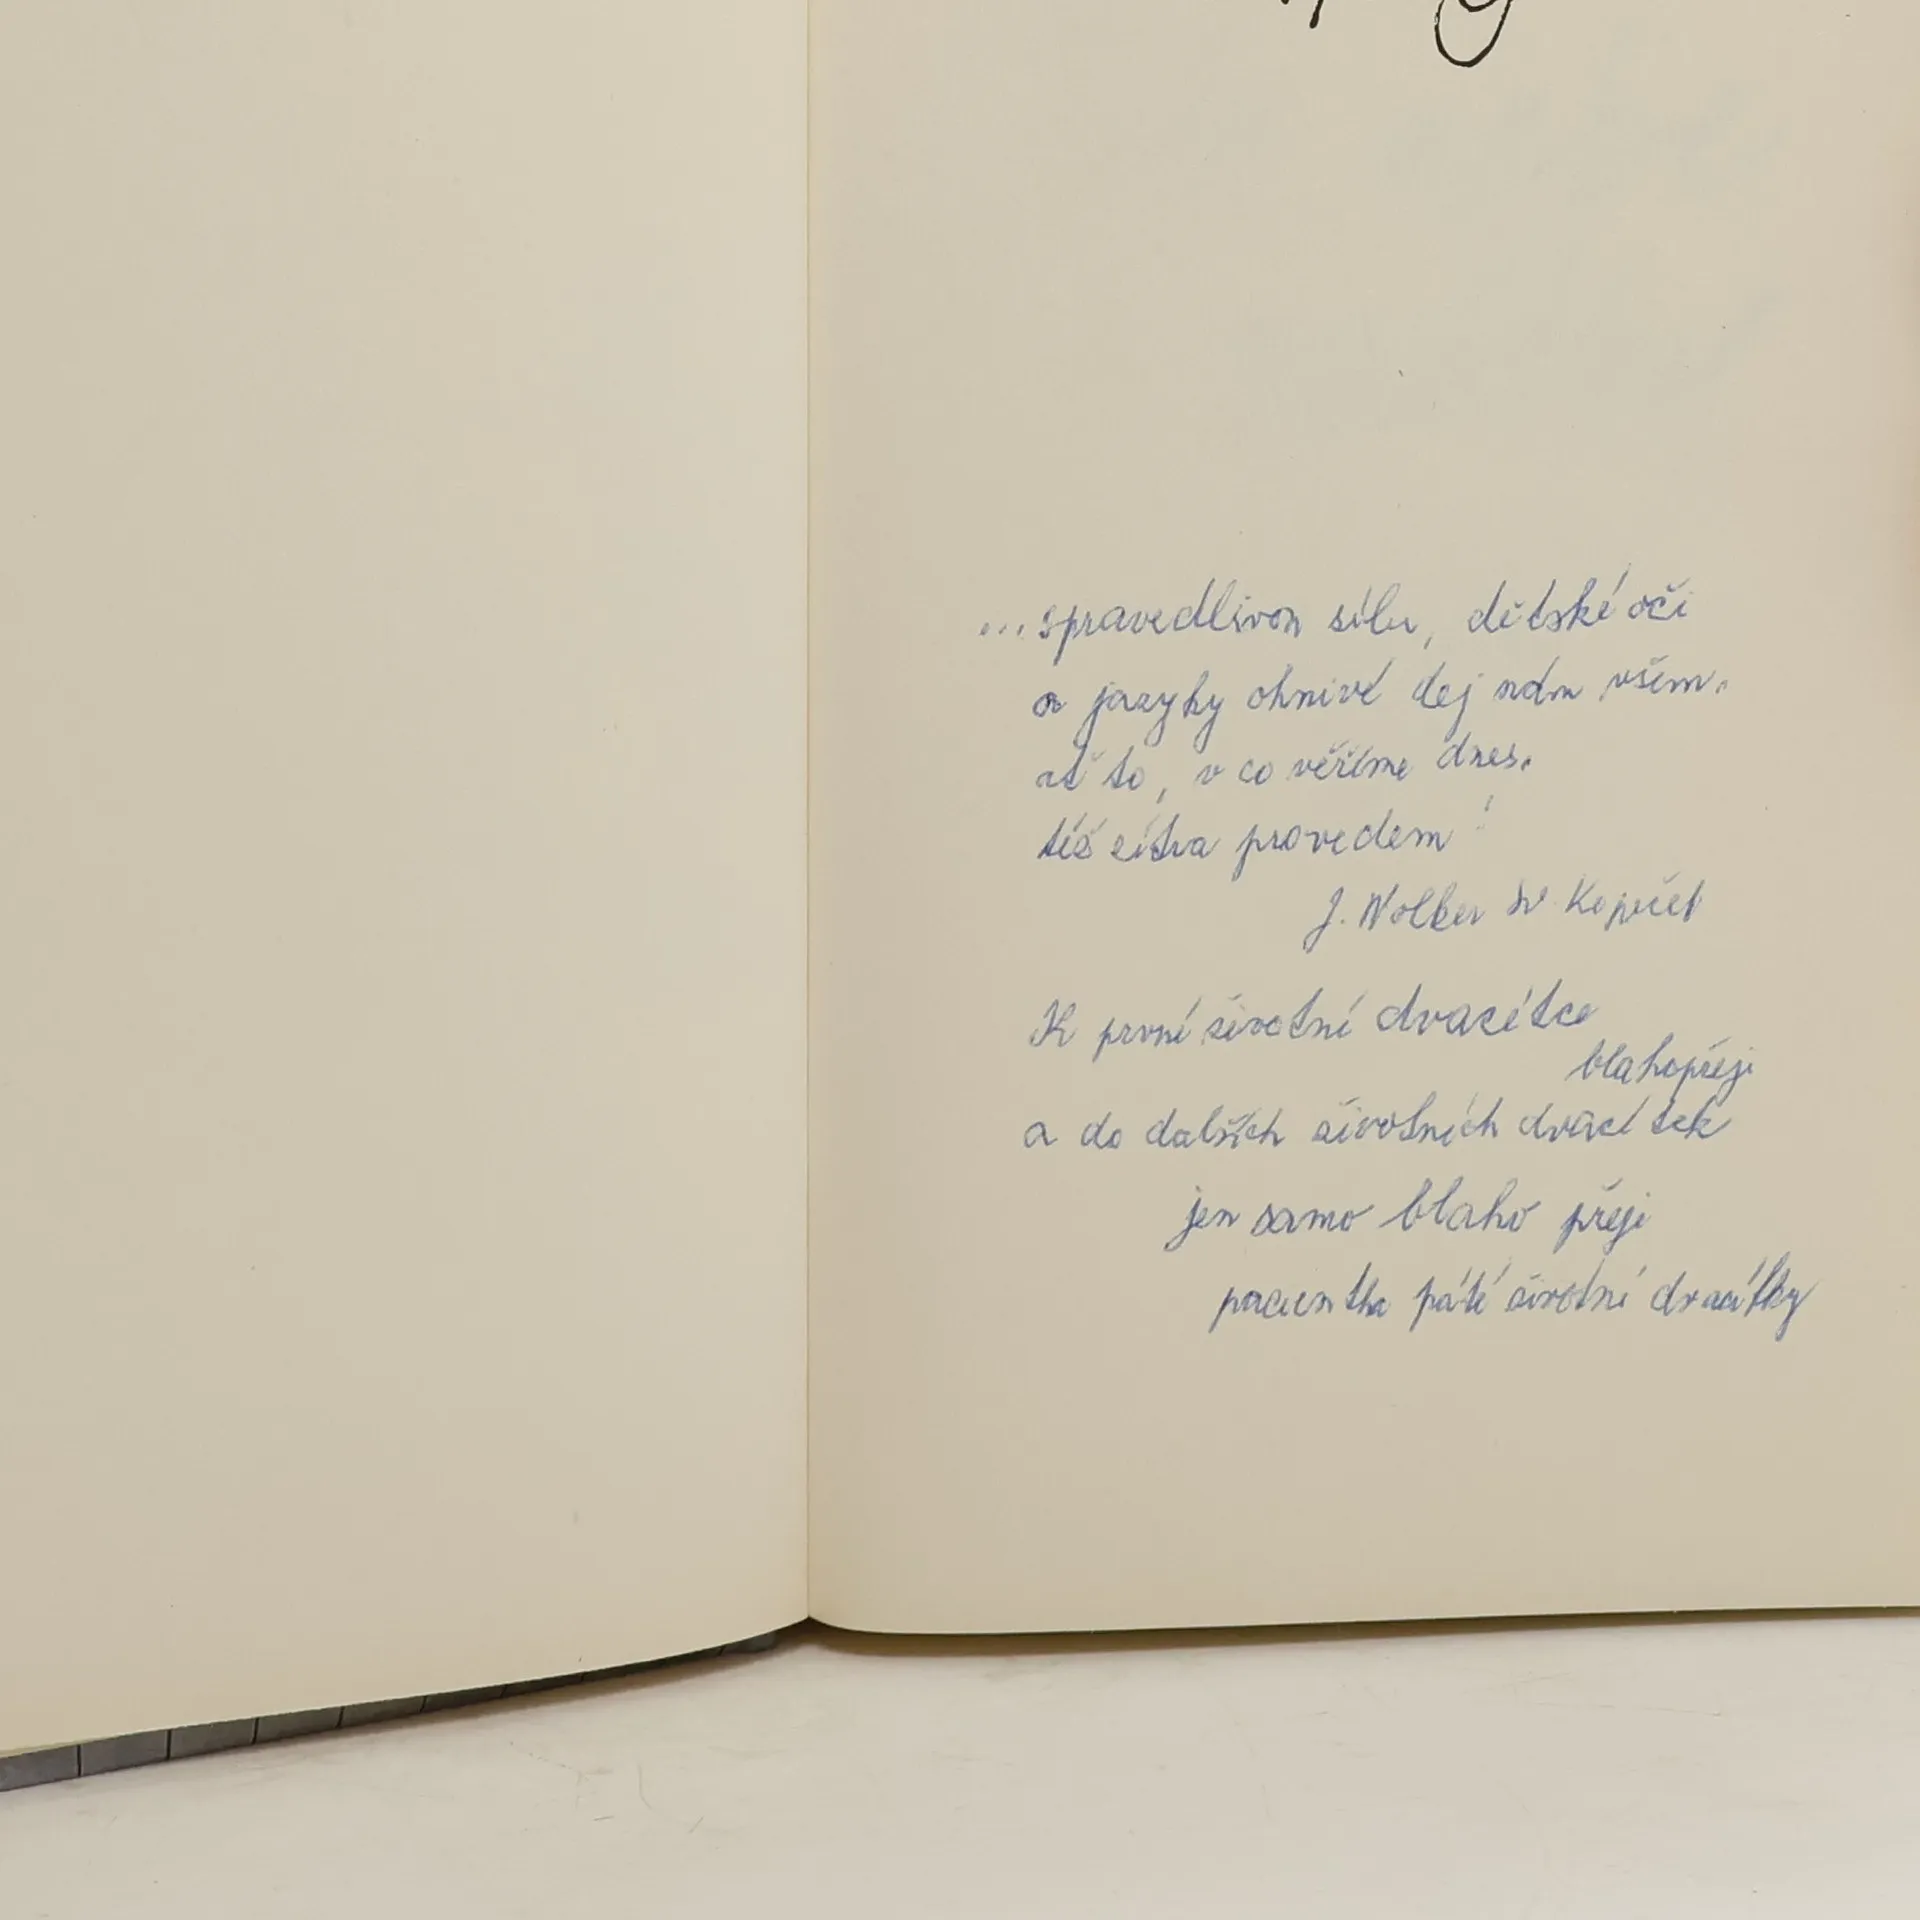 ...spravedlivou sílu, dětské oči
a jazyky ohnivé dej nám všem.
ať to, v co věříme dnes.
též zítra provedem!
J. Wolker Sv. Kopeček
K první životní dvacítce
blahopřeji
a do dalších životních dvacítek
jen samo blaho přeji
pacientka páté životní dvacítky